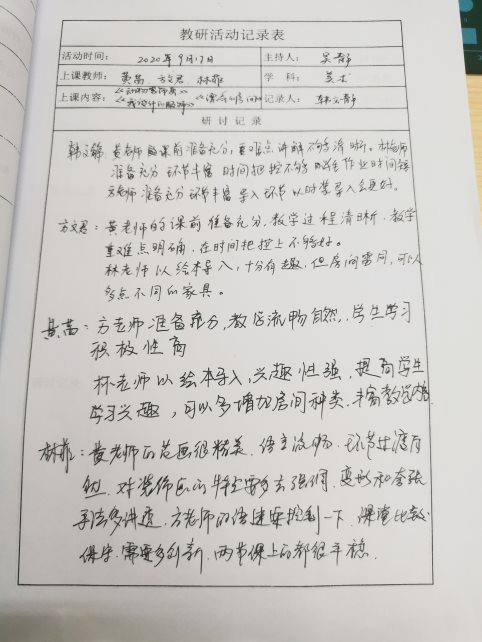 教研活动记录表
活动时间: 2020年9月17日 主持人: 吴静
上课教师: 黄茜、方文君、林菲 学 科: 美术
上课内容: 《动物装饰画》《我设计的服饰》《漂亮的房间》 记录人: 韩文静
研 讨 记 录
韩文静: 黄老师的课前准备充分,重难点讲解不够清晰。林老师
准备充分 环节丰富 时间把控不够 学生作业时间短
方老师 准备充分 环节丰富 导入环节 以时装导入会更好。
方文君: 黄老师的课前准备充分,教学过程清晰、教学
重难点明确,在时间把控上不够好。
林老师以绘本导入,十分有趣,但房间雷同,可以
多点不同的家具。
黄茜: 方老师准备充分,教学流畅自然,学生学习
积极性高
林老师以绘本导入,兴趣性强,提高学生
学习兴趣,可以多增加房间种类,丰富教学内容
林菲: 黄老师的范画很精美、语言流畅、环节过渡自
然,对装饰画的特点要多去强调,变形和夸张
手法多讲透,方老师的语速要控制一下,课堂比较
保守,需要多创新,两节课上的都很平稳.